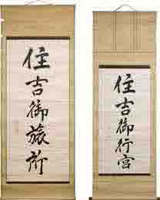 住吉御行宮
住吉御旅所